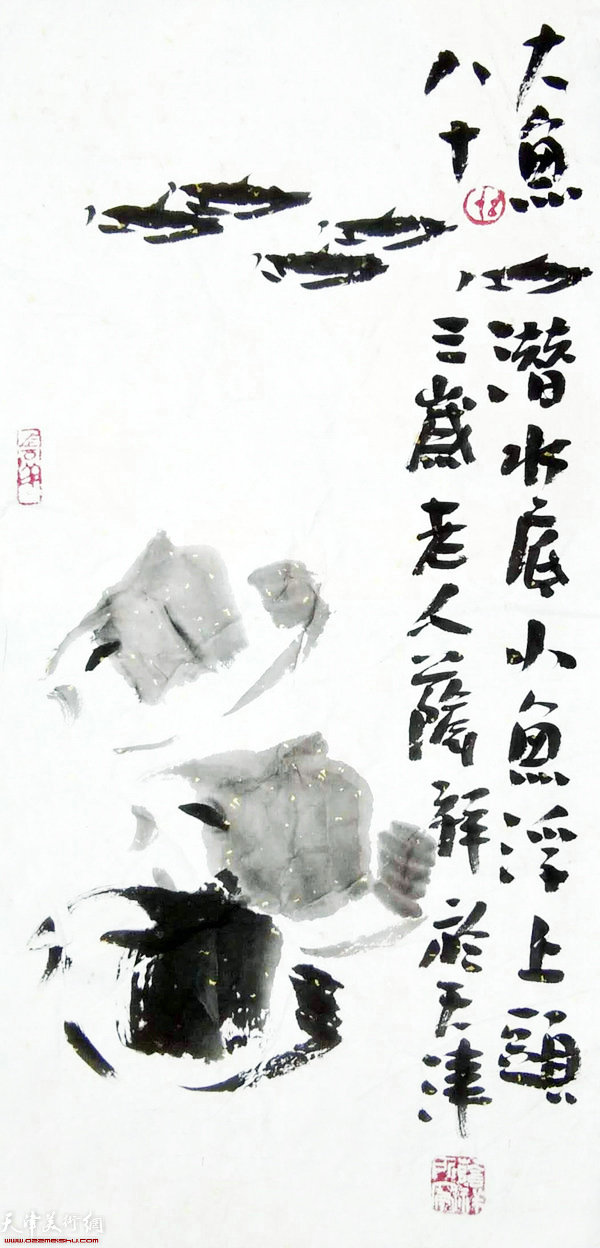 大鱼潜水底小鱼浮上头
八十三歲老人蔭祥於天津
天津美術網
www.022meishu.com